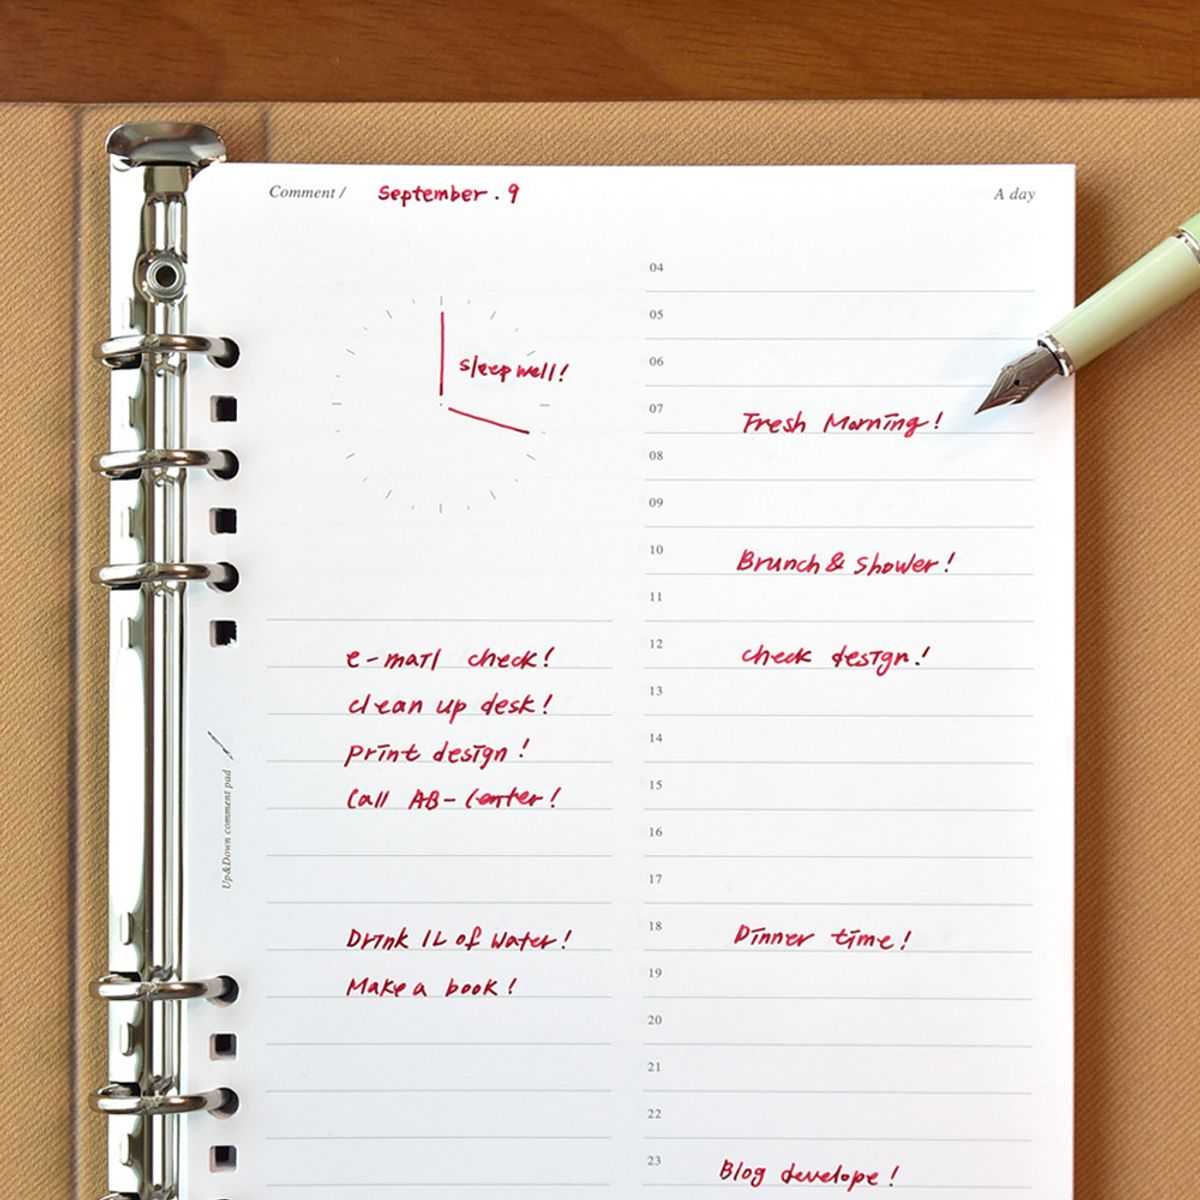 Comment / September . 9
A day
sleep well!
e-mail check!
clean up desk!
print design!
Call AB-Center!
Drink 1L of water!
Make a book!
Up&Down comment pad /
04
05
06
07 Fresh Morning!
08
09
10 Brunch & shower!
11
12 check design!
13
14
15
16
17
18 Dinner time!
19
20
21
22
23 Blog develope!